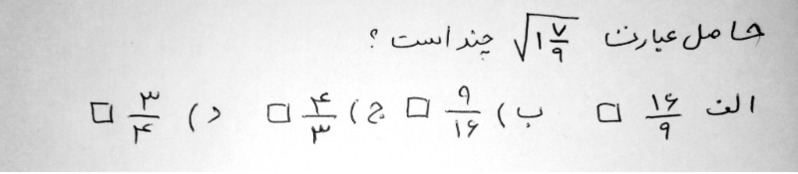 حاصل عبارت √۱ ۷/۹ چند است ؟
الف ۱۶/۹ □ ب) ۹/۱۶ □ ج) ۴/۳ □ د) ۳/۴ □